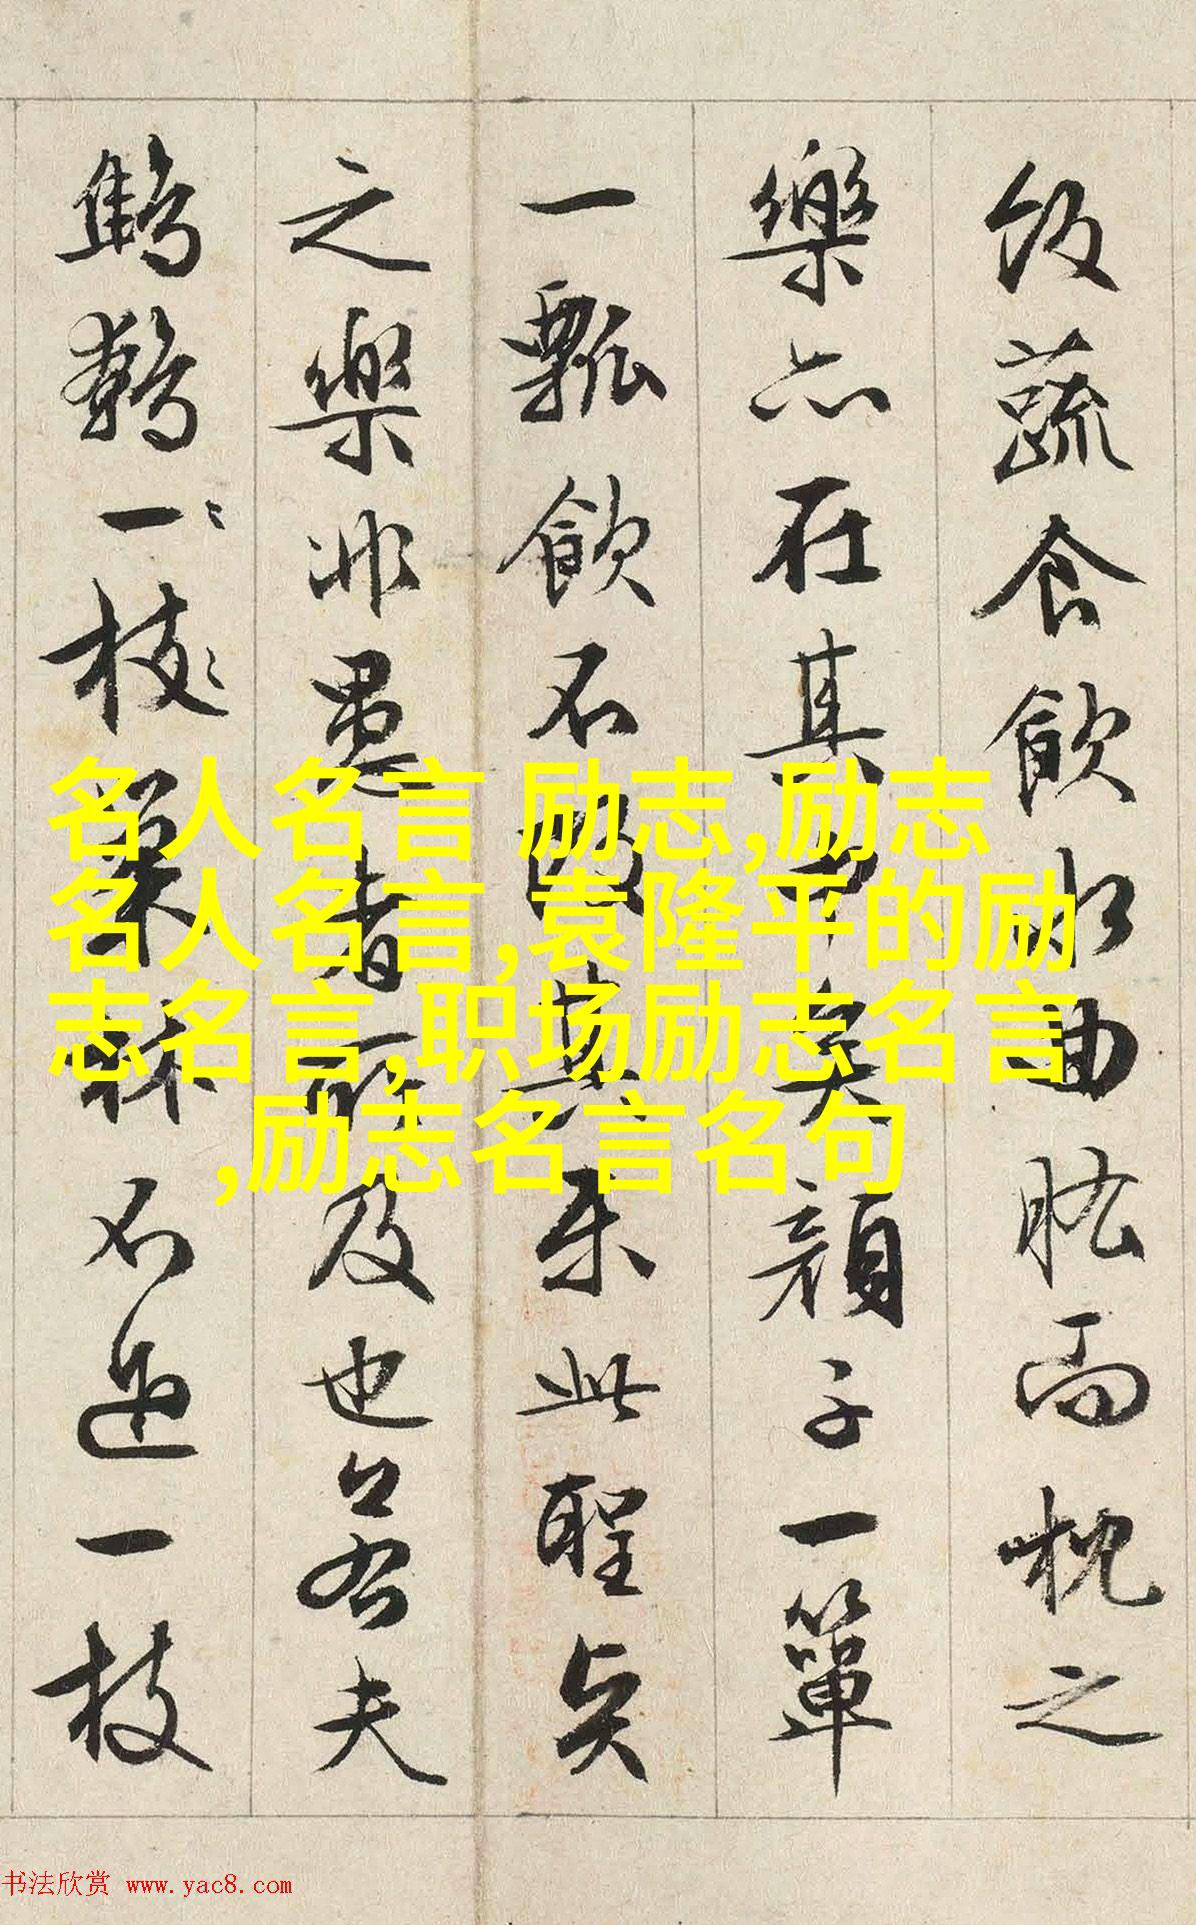 飯蔬食飲水曲肱而枕之
樂亦在其中矣顔子一簞
一瓢飲不改其樂此聖賢
之樂非愚者所及也若夫
鷦鷯一枝巢林不過一枝
名人名言 励志,励志
名人名言,袁隆平的励
志名言,职场励志名言
,励志名言名句
书法欣赏 www.yac8.com